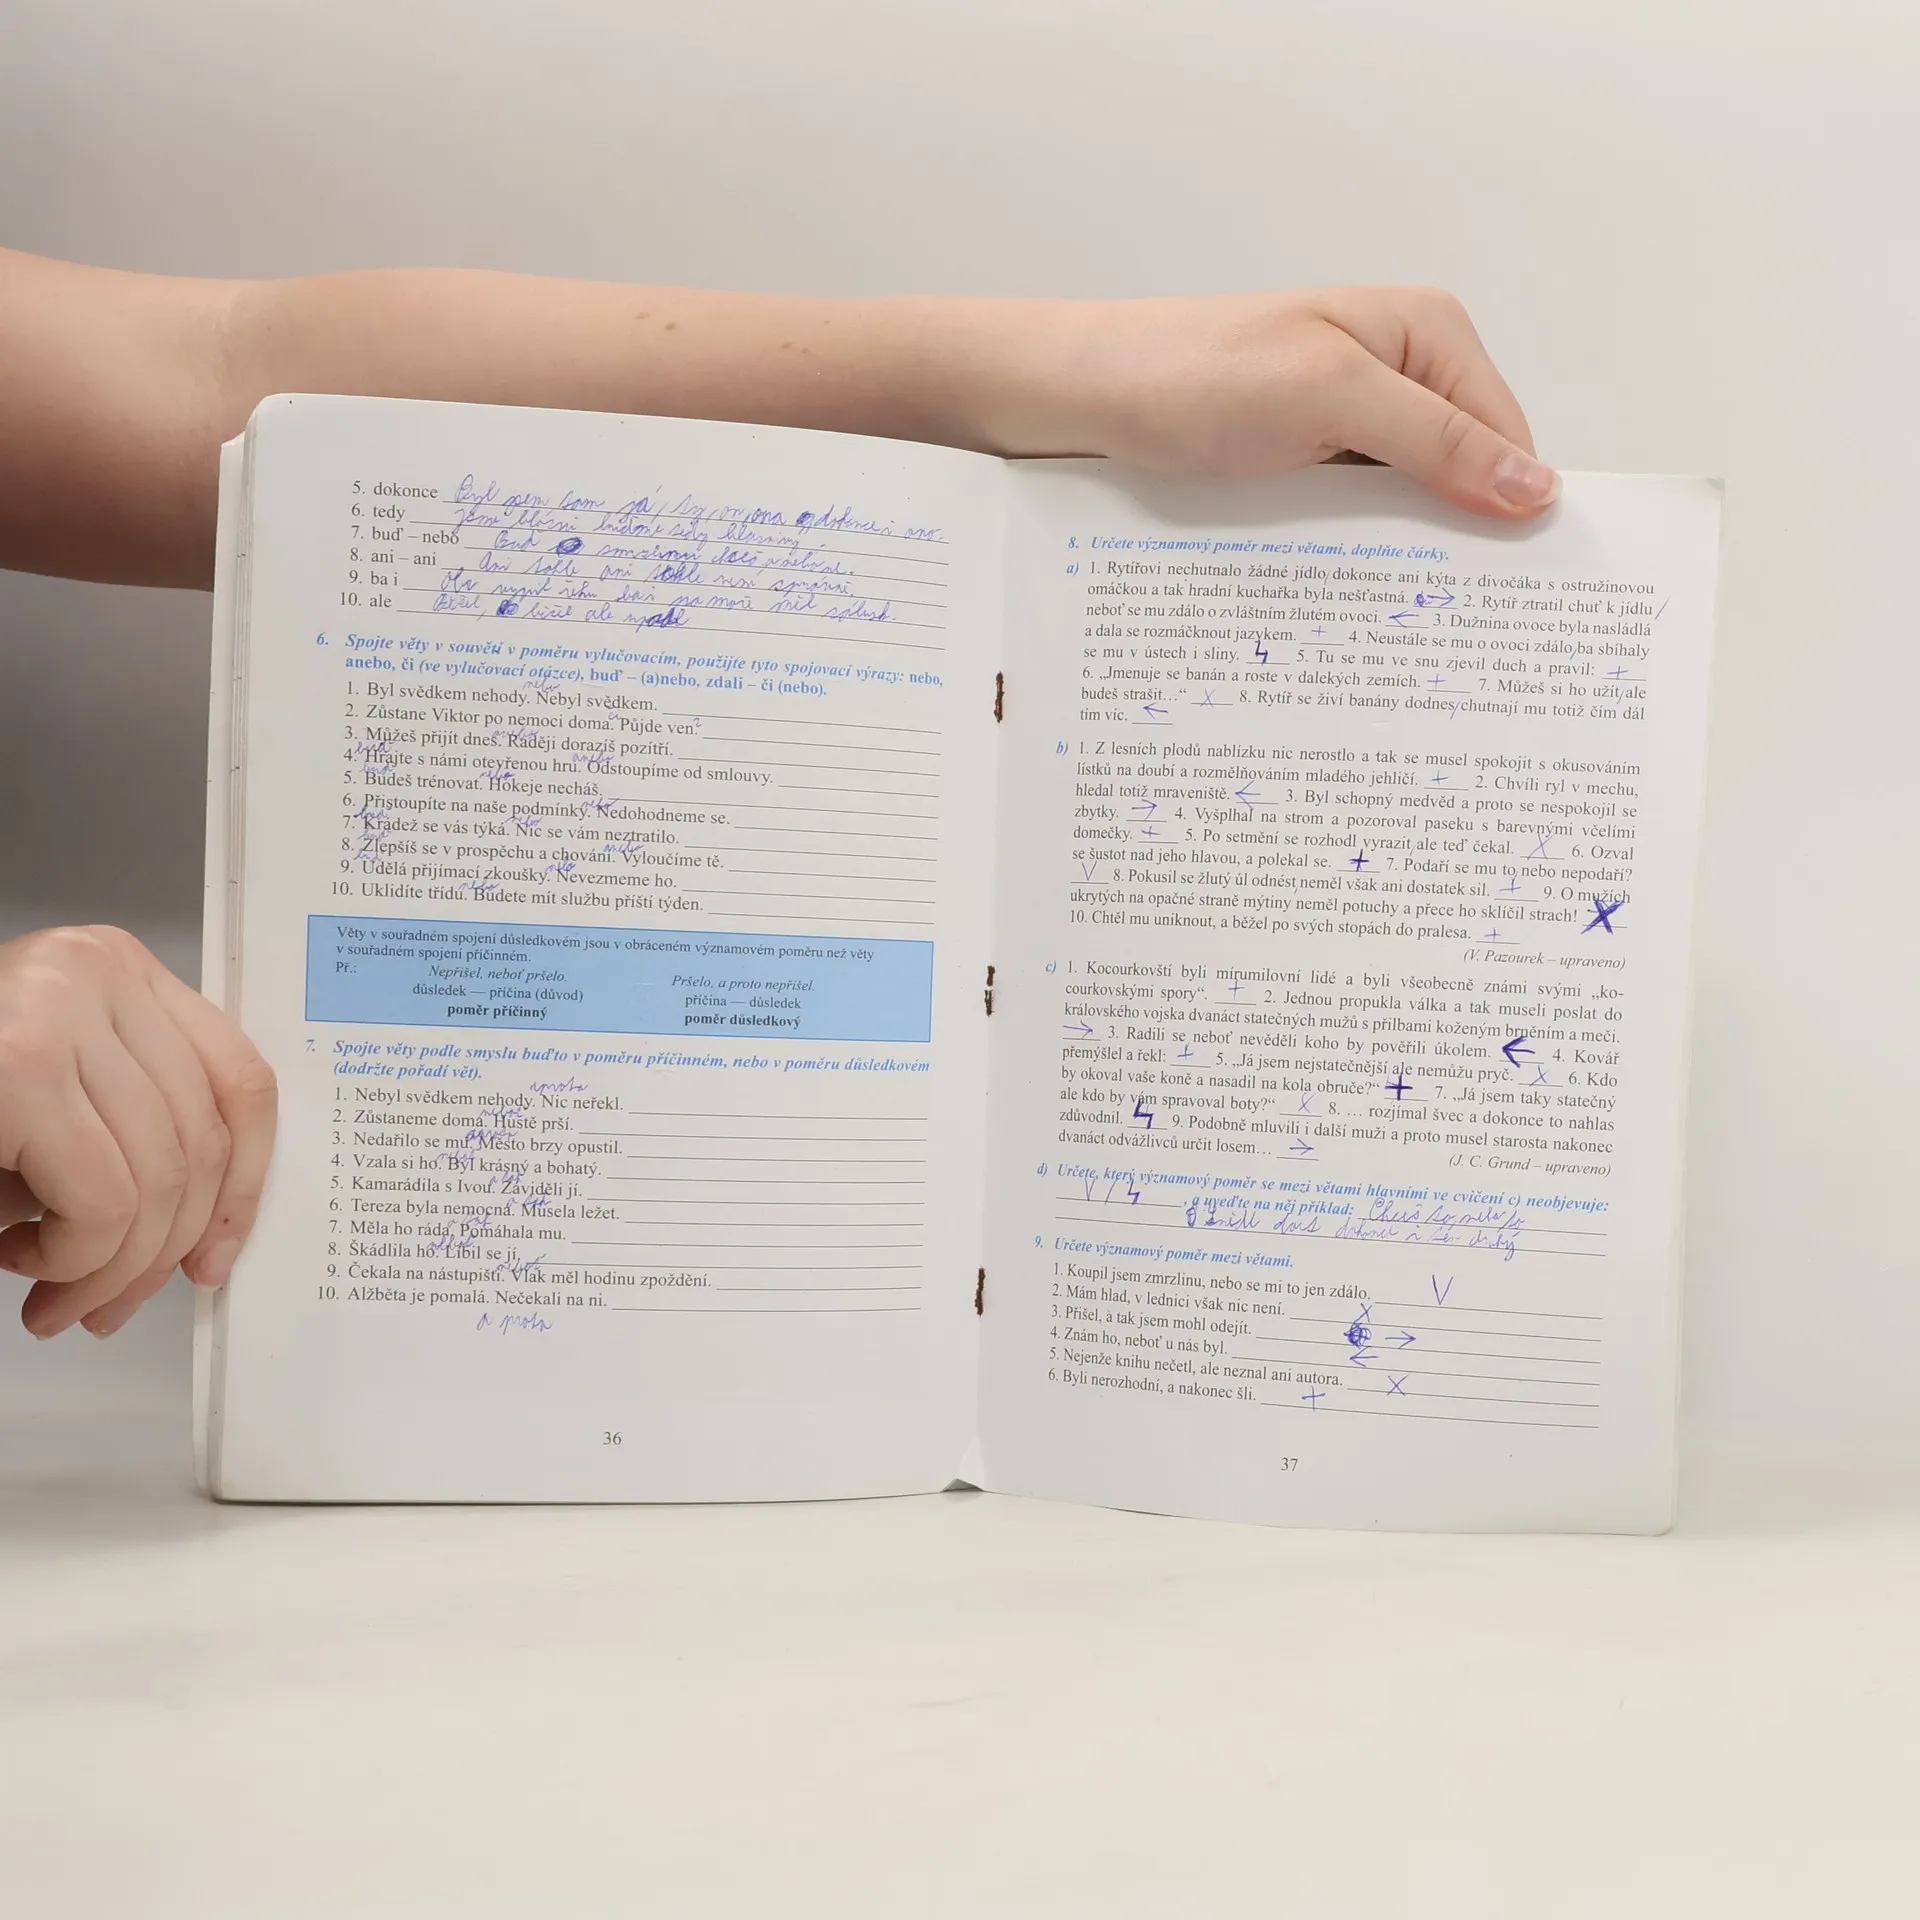 5. dokonce Byl jsem sam já, ty, on, ona dokonce i ono.
6. tedy
7. buď – nebo Buď
8. ani – ani Ani tohle ani tohle není správně.
9. ba i
10. ale Běžel, běžel ale upadl
6. Spojte věty v souvětí v poměru vylučovacím, použijte tyto spojovací výrazy: nebo,
anebo, či (ve vylučovací otázce), buď – (a)nebo, zdali – či (nebo).
nebo
1. Byl svědkem nehody. Nebyl svědkem.
či
2. Zůstane Viktor po nemoci doma. Půjde ven. ?
anebo
3. Můžeš přijít dnes. Raději dorazíš pozítří.
buď anebo
4. Hrajte s námi otevřenou hru. Odstoupíme od smlouvy.
buď nebo
5. Budeš trénovat. Hokeje necháš.
nebo
6. Přistoupíte na naše podmínky. Nedohodneme se.
buď nebo
7. Krádež se vás týká. Nic se vám neztratilo.
buď anebo
8. Zlepšíš se v prospěchu a chování. Vyloučíme tě.
buď nebo
9. Udělá přijímací zkoušky. Nevezmeme ho.
nebo
10. Uklidíte třídu. Budete mít službu příští týden.
Věty v souřadném spojení důsledkovém jsou v obráceném významovém poměru než věty
v souřadném spojení příčinném.
Př.: Nepřišel, neboť pršelo. Pršelo, a proto nepřišel.
důsledek — příčina (důvod) příčina — důsledek
poměr příčinný poměr důsledkový
7. Spojte věty podle smyslu buďto v poměru příčinném, nebo v poměru důsledkovém
(dodržte pořadí vět).
aproto
1. Nebyl svědkem nehody. Nic neřekl.
neboť
2. Zůstaneme doma. Hustě prší.
aproto
3. Nedařilo se mu. Město brzy opustil.
neboť
4. Vzala si ho. Byl krásný a bohatý.
a tak
5. Kamarádila s Ivou. Záviděli jí.
a tak
6. Tereza byla nemocná. Musela ležet.
a tak
7. Měla ho ráda. Pomáhala mu.
neboť
8. Škádlila ho. Líbil se jí.
neboť
9. Čekala na nástupišti. Vlak měl hodinu zpoždění.
10. Alžběta je pomalá. Nečekali na ni.
a proto
36
8. Určete významový poměr mezi větami, doplňte čárky.
a) 1. Rytířovi nechutnalo žádné jídlo, dokonce ani kýta z divočáka s ostružinovou
omáčkou a tak hradní kuchařka byla nešťastná. → 2. Rytíř ztratil chuť k jídlu,
neboť se mu zdálo o zvláštním žlutém ovoci. ← 3. Dužnina ovoce byla nasládlá
a dala se rozmáčknout jazykem. + 4. Neustále se mu o ovoci zdálo, ba sbíhaly
se mu v ústech i sliny. 5. Tu se mu ve snu zjevil duch a pravil: +
6. „Jmenuje se banán a roste v dalekých zemích. + 7. Můžeš si ho užít, ale
budeš strašit…“ X 8. Rytíř se živí banány dodnes, chutnají mu totiž čím dál
tím víc. ←
b) 1. Z lesních plodů nablízku nic nerostlo a tak se musel spokojit s okusováním
lístků na doubí a rozmělňováním mladého jehličí. + 2. Chvíli ryl v mechu,
hledal totiž mraveniště. ← 3. Byl schopný medvěd a proto se nespokojil se
zbytky. → 4. Vyšplhal na strom a pozoroval paseku s barevnými včelími
domečky. + 5. Po setmění se rozhodl vyrazit, ale teď čekal. X 6. Ozval
se šustot nad jeho hlavou, a polekal se. + 7. Podaří se mu to, nebo nepodaří?
V 8. Pokusil se žlutý úl odnést, neměl však ani dostatek sil. + 9. O mužích
ukrytých na opačné straně mýtiny neměl potuchy a přece ho sklíčil strach! X
10. Chtěl mu uniknout, a běžel po svých stopách do pralesa. +
(V. Pazourek – upraveno)
c) 1. Kocourkovští byli mírumilovní lidé a byli všeobecně známi svými „ko-
courkovskými spory“. + 2. Jednou propukla válka a tak museli poslat do
královského vojska dvanáct statečných mužů s přilbami koženým brněním a meči.
→ 3. Radili se neboť nevěděli koho by pověřili úkolem. ← 4. Kovář
přemýšlel a řekl: + 5. „Já jsem nejstatečnější ale nemůžu pryč. X 6. Kdo
by okoval vaše koně a nasadil na kola obruče?“ + 7. „Já jsem taky statečný
ale kdo by vám spravoval boty?“ X 8. … rozjímal švec a dokonce to nahlas
zdůvodnil. 9. Podobně mluvili i další muži a proto musel starosta nakonec
dvanáct odvážlivců určit losem… →
(J. C. Grund – upraveno)
d) Určete, který významový poměr se mezi větami hlavními ve cvičení c) neobjevuje:
V / , a uveďte na něj příklad: Chceš to, nebo to
9. Určete významový poměr mezi větami.
1. Koupil jsem zmrzlinu, nebo se mi to jen zdálo. V
2. Mám hlad, v lednici však nic není. X
3. Přišel, a tak jsem mohl odejít. →
4. Znám ho, neboť u nás byl. ←
5. Nejenže knihu nečetl, ale neznal ani autora. X
6. Byli nerozhodní, a nakonec šli. +
37